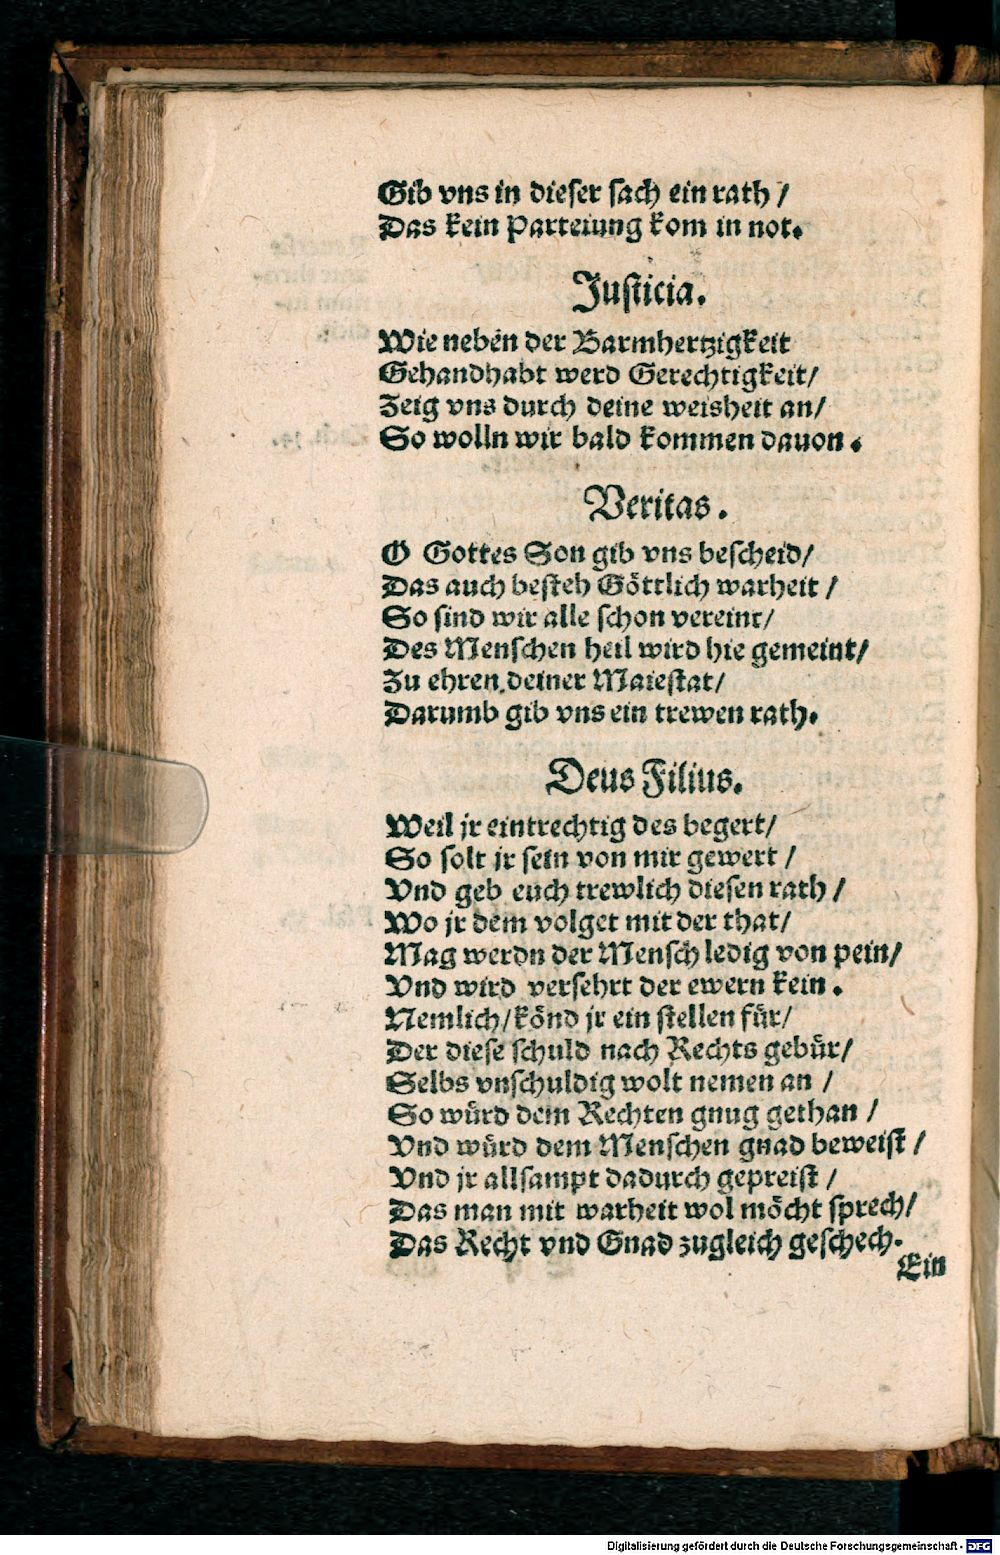 Gib vns in dieſer ſach ein rath /
Das kein Parteiung kom in not.
Juſticia.
Wie neben der Barmhertzigkeit
Gehandhabt werd Gerechtigkeit/
Zeig vns durch deine weisheit an/
So wolln wir bald kommen dauon.
Veritas.
O Gottes Son gib vns beſcheid/
Das auch beſteh Göttlich warheit /
So ſind wir alle ſchon vereint/
Des Menſchen heil wird hie gemeint/
Zu ehren deiner Maieſtat/
Darumb gib vns ein trewen rath.
Deus Filius.
Weil jr eintrechtig des begert/
So ſolt jr ſein von mir gewert /
Vnd geb euch trewlich dieſen rath /
Wo jr dem volget mit der that/
Mag werdn der Menſch ledig von pein/
Vnd wird verſehrt der ewern kein.
Nemlich/könd jr ein ſtellen für/
Der dieſe ſchuld nach Rechts gebür/
Selbs vnſchuldig wolt nemen an /
So würd dem Rechten gnug gethan /
Vnd würd dem Menſchen gnad beweiſt /
Vnd jr allſampt dadurch gepreiſt /
Das man mit warheit wol möcht ſprech/
Das Recht vnd Gnad zugleich geſchech.
Ein
Digitalisierung gefördert durch die Deutsche Forschungsgemeinschaft - DFG